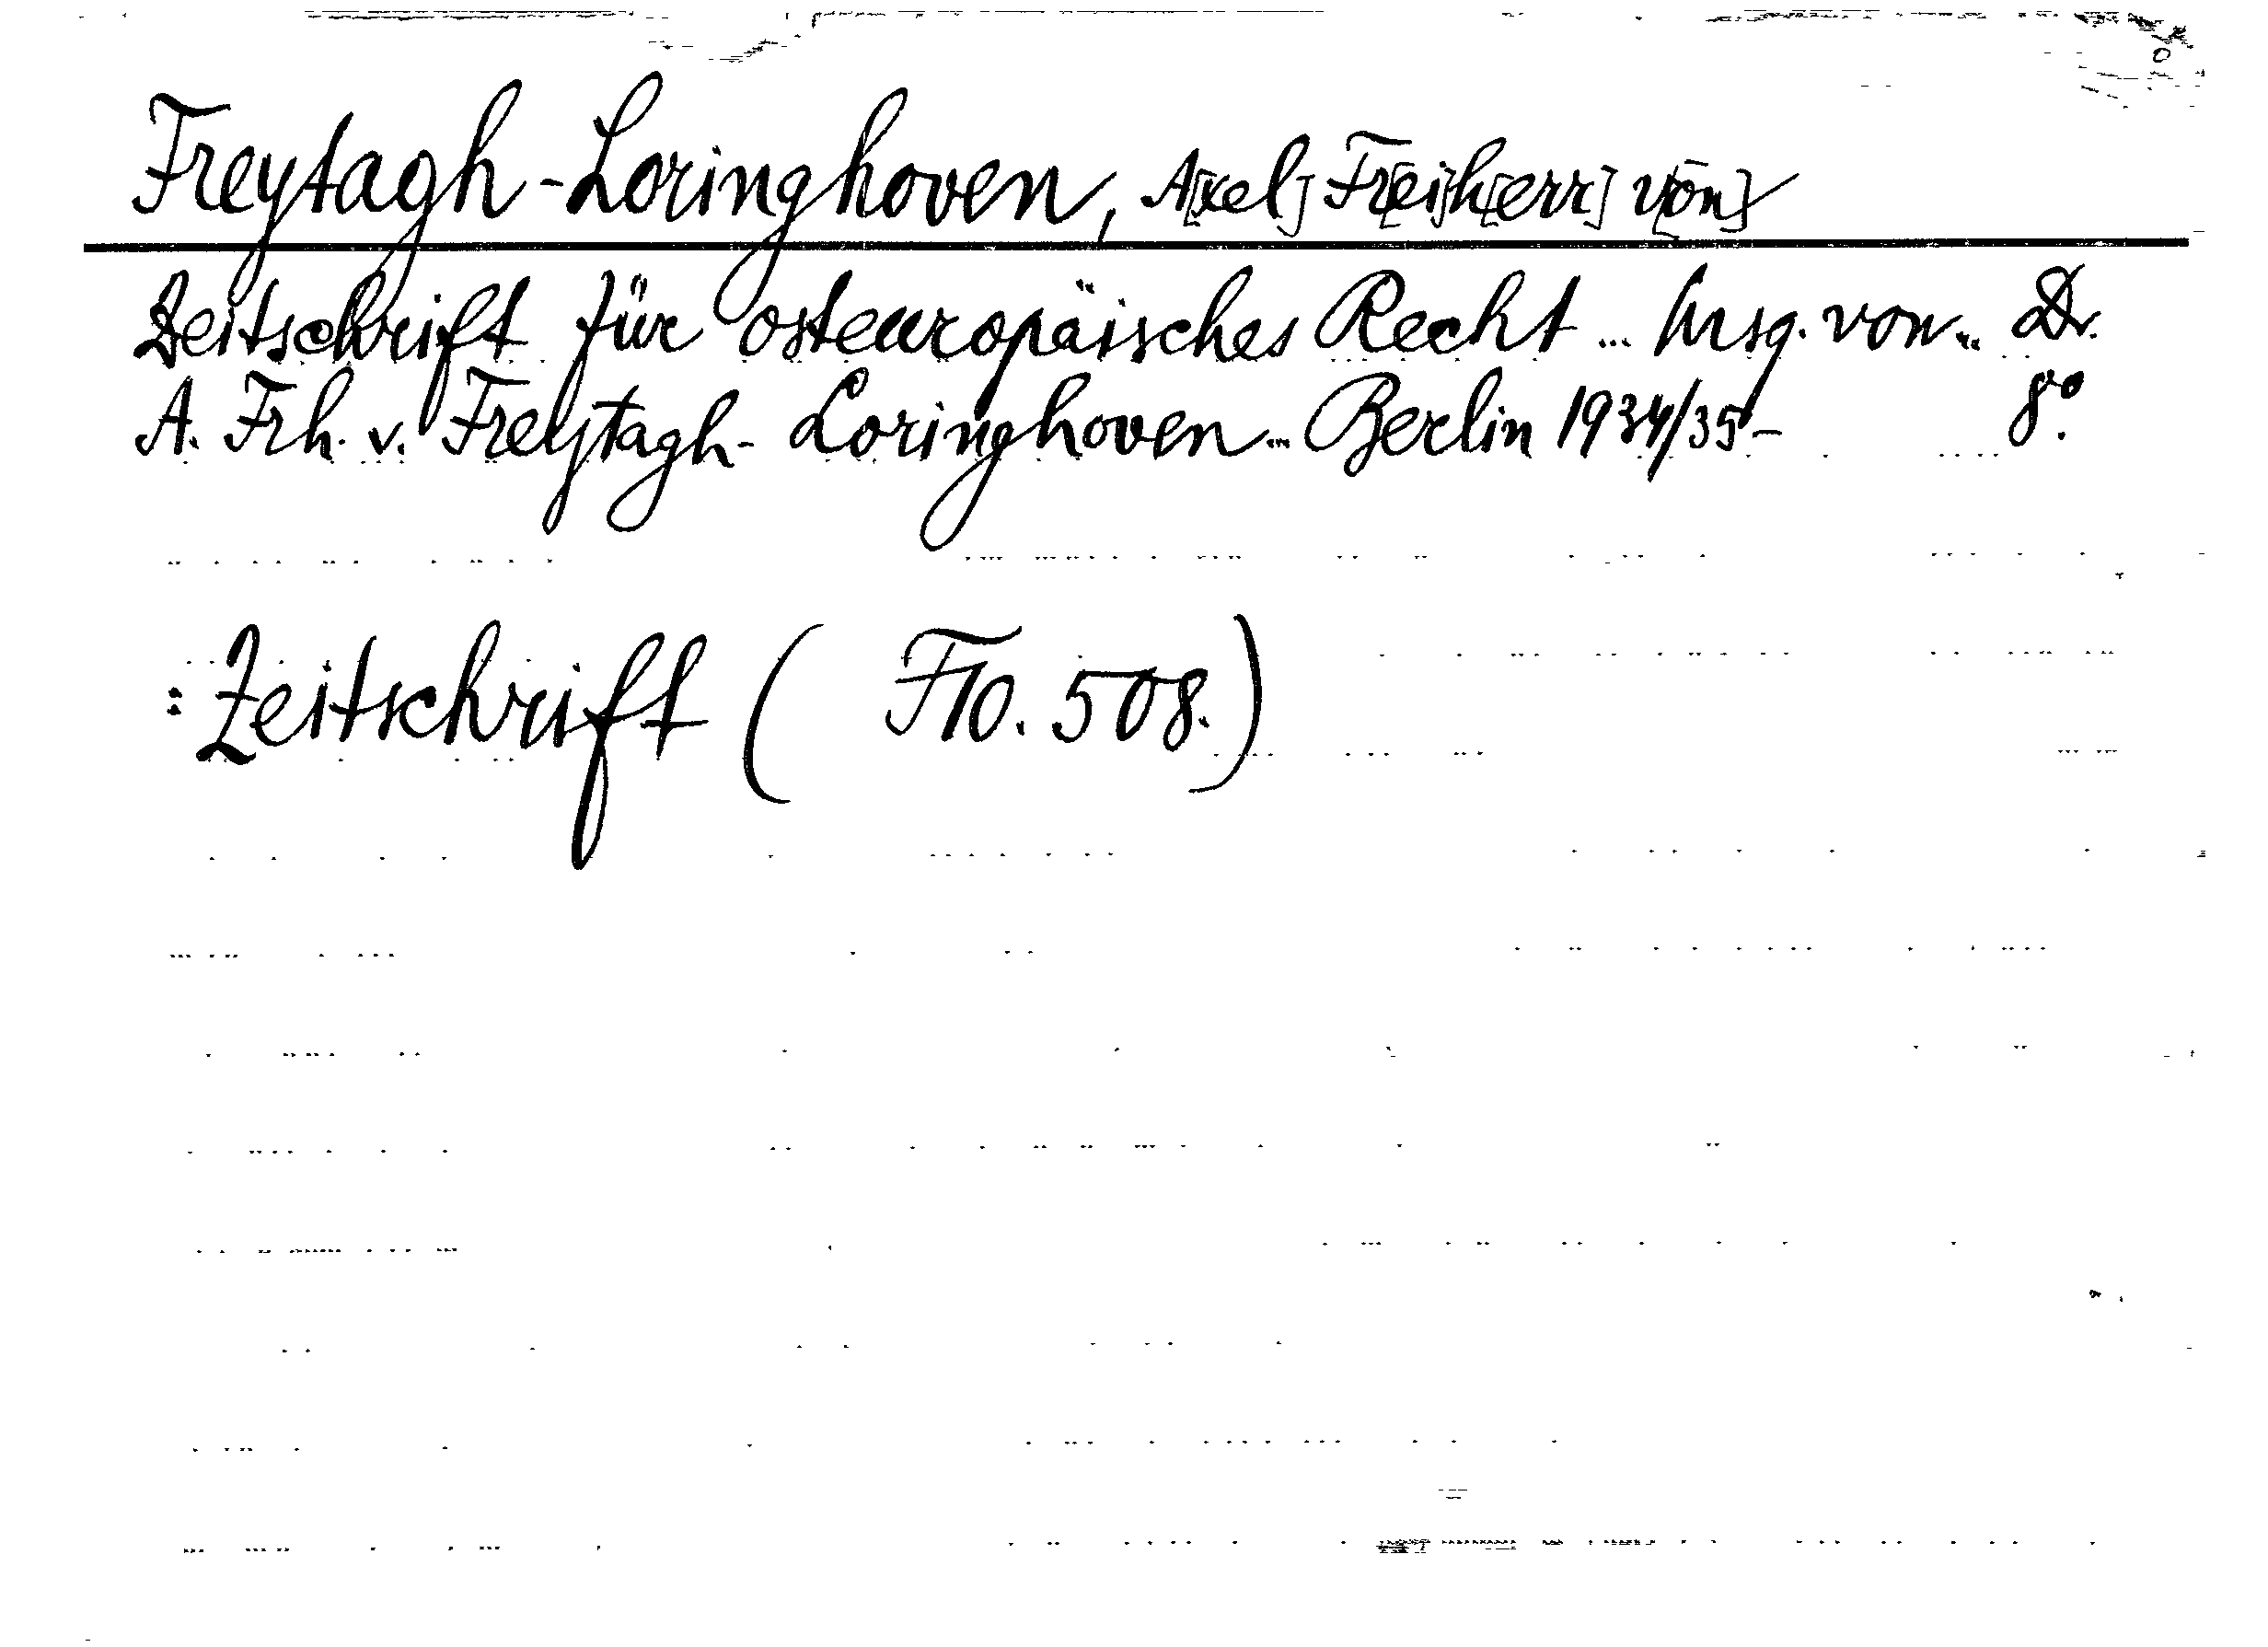 Freytagh-Loringhoven, A[xel] Fr[ei]h[err] v[on]
Zeitschrift für osteuropäisches Recht ... hrsg. von ... Dr.
A. Frh. v. Freytagh-Loringhoven ... Berlin 1934/35- 8°.
: Zeitschrift ( F10. 508. )